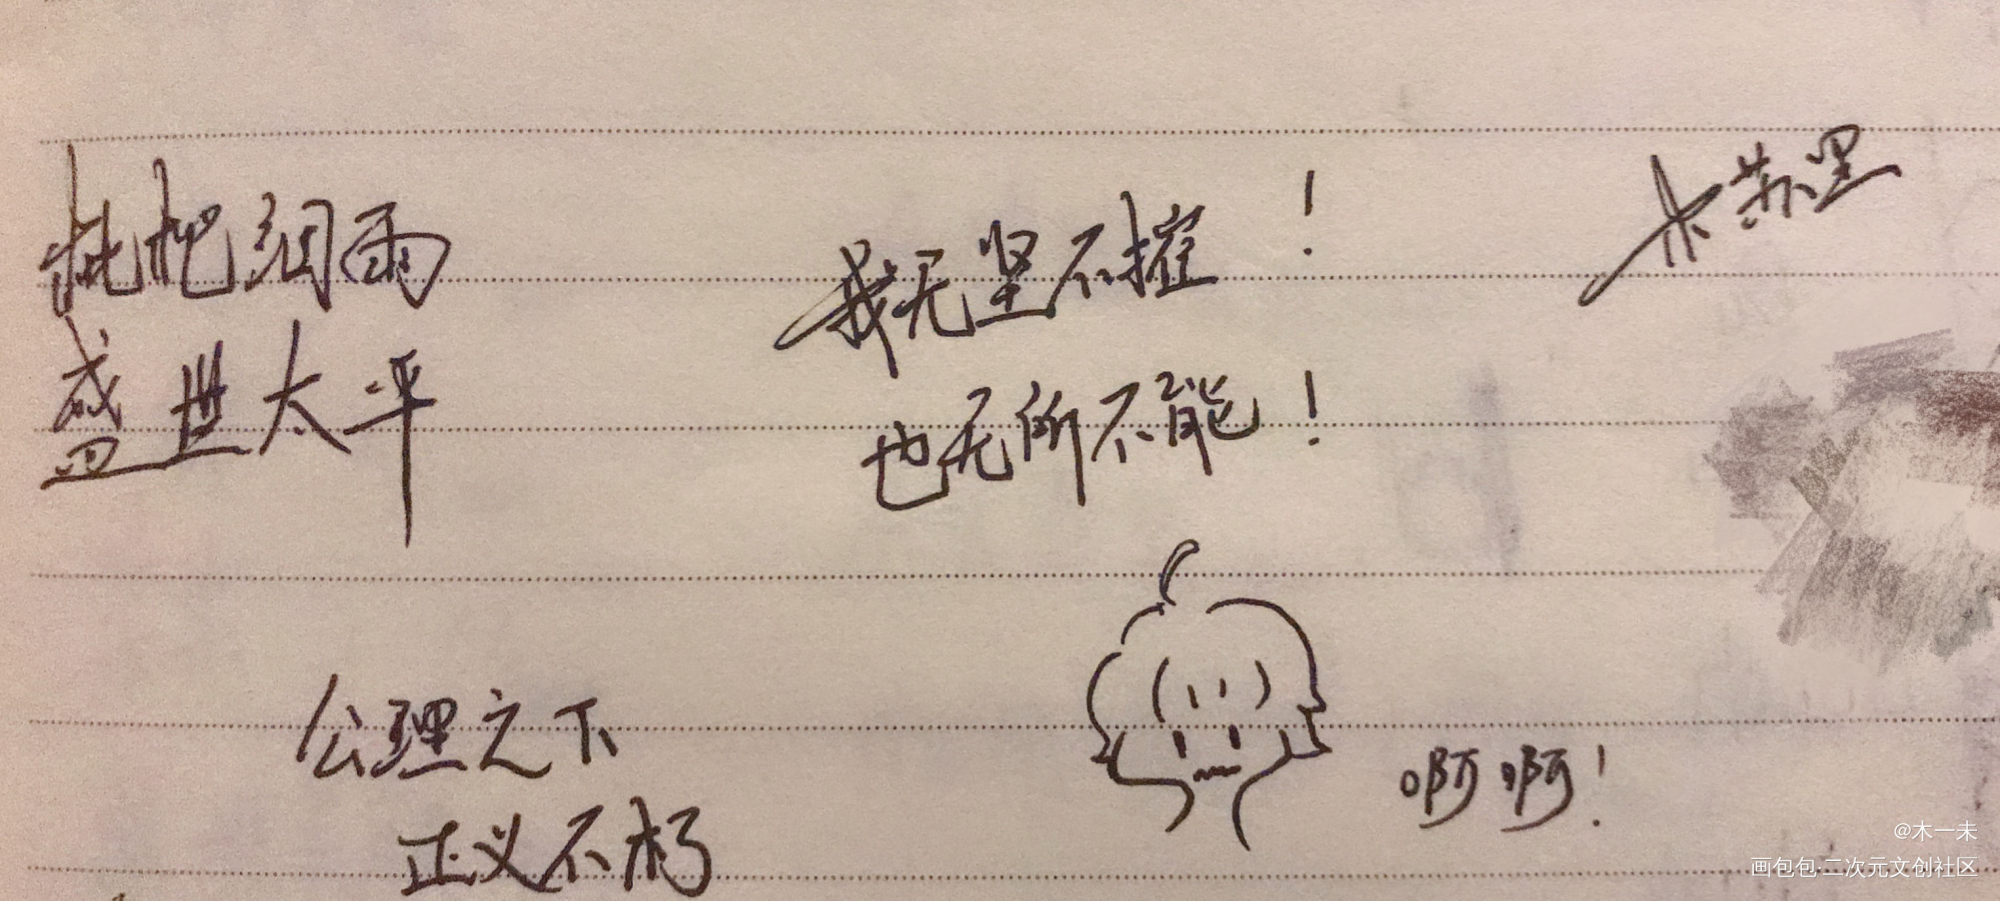 枇杷细雨
盛世太平
我无坚不摧！
也无所不能！
木苏里
公理之下
正义不朽
啊啊！
@木一未
画包包·二次元文创社区